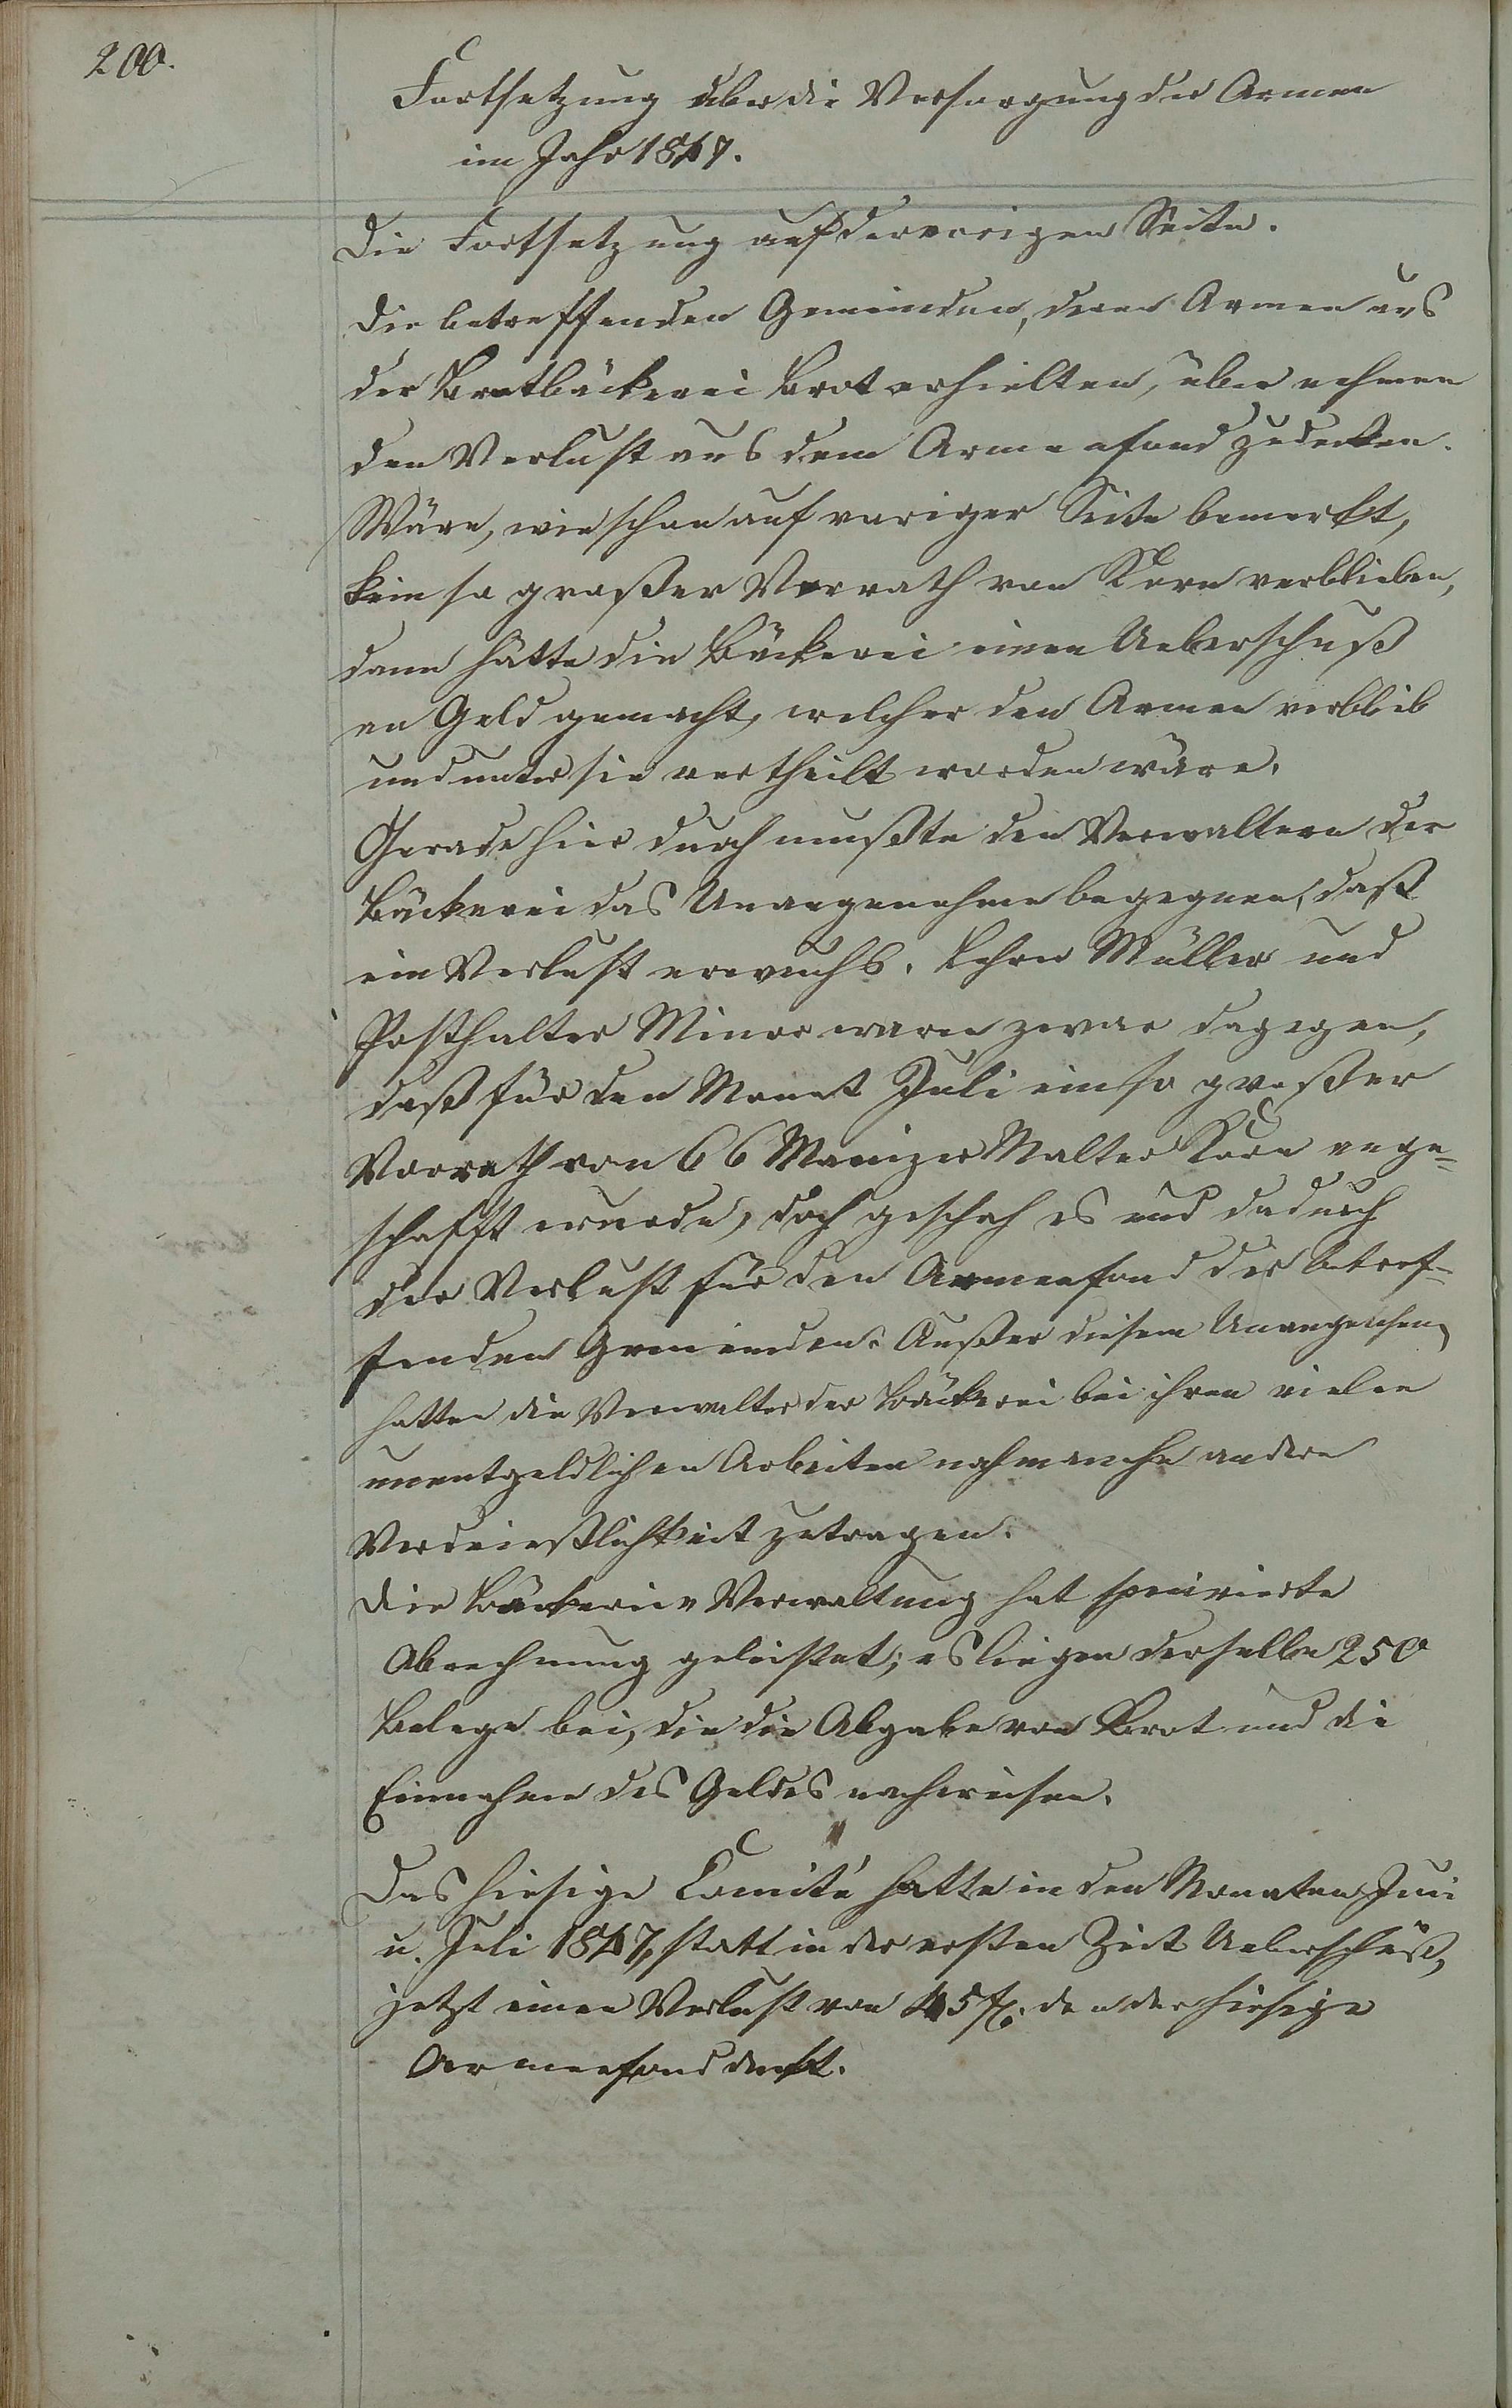 200.
Fortsetzung über die Versorgung der Armen
im Jahr 1847.
Die Fortsetzung auf der vorigen Seite.
Die betreffenden Gemeinden, deren Armen aus
der Brotbäckerei Brot erhielten, über nehmen
den Verlust aus dem Armenfond zu decken.
Wäre, wie schon auf voriger Seite bemerkt,
kein so großer Vorrath von Korn verblieben,
dann hätte die Bäckerei einen Ueberschuß
an Geld gemacht, welcher den Armen verblieb
und unter sie vertheilt worden wäre.
Gerade hier durch mußte den Verwaltern der
Bäckerei das Unangenehme begegnen, daß
ein Verlust erwuchs. Lehrer Müller und
Posthalter Minor waren zwar dagegen,
daß für den Monat Juli ein so großer
Vorrath von 66 Mainzer Malter Korn ange=
schafft wurde, doch geschah es und dadurch
der Verlust für den Armenfond der betref=
fenden Gemeinden. Außer diesem Unangenehmen
hatten die Verwalter der Bäckerei bei ihren vielen
unentgeldlichen Arbeiten noch manche andere
Verdrießlichkeit zu tragen.
Die Bäckerei-Verwaltung hat specivierte
Abrechnung geleistet; es liegen derselben 250
Belege bei, die die Abgabe von Brot und die
Einnahme des Geldes nachweisen.
Das hiesige Comité hatte in den Monaten Juni
u. Juli 1847, statt in der ersten Zeit Ueberschuß,
jetzt einen Verlust von 45 fl. den der hiesige
Armenfond deckt.